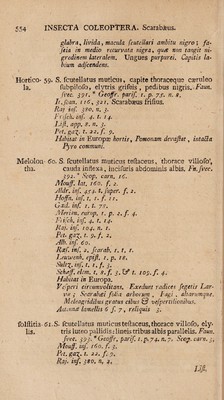 554 INSECTA COLEOPTERA. Scarabæus.
glabra, livida, macula scutellari ambitu nigro; fa-
scia in medio recurvata nigra, quæ non tangit ni-
gredinem lateralem. Ungues purparei. Capitis la-
bium adscendens.
Hortico- 59. S. scutellatus muticus, capite thoraceque cæruleo
la. subpiloso, elytris griseis, pedibus nigris. Faun.
svec. 391. * Geoffr. paris. 1. p. 75. n. 8.
It. scan. 116, 321. Scarabæus frisius.
Raj. ins. 380. n. 3.
Frisch. ins. 4. t. 14.
List. app. 2. n. 3.
Pet. gaz. t. 22. f. 9.
Habitat in Europæ hortis, Pomonam devastat, intacta
Pyro communi.
Melolon- 60. S. scutellatus muticus testaceus, thorace villoso,
tha. cauda inflexa, incisuris abdominis albis. Fn. svec.
392. * Scop. carn. 16.
Mouff. lat. 160. f. 2.
Aldr. ins. 454. t. super. f. 2.
Hoffn. ins. 1. t. f. 11.
Gœd. ins. 1. t. 78.
Merian. europ. 1. p. 2. f. 4.
Frisch. ins. 4. t. 14.
Raj. ins. 104. n. 1.
Pet. gaz. t. 9. f. 2.
Alb. ins. 60.
Rœs. ins. 2. scarab. 1. t. 1.
Leuwenh. epist. 1. p. 18.
Sulz. ins. t. 1. f. 3.
Schæff. elem. t. 8. f. 3. & t. 109. f. 4.
Habitat in Europa.
Vesperi circumvolitans. Exedunt radices segetis Lar-
væ; Scarabæi folia arborum, Fagi, aliarumque.
Meleagridibus gratus cibus & vespertilionibus.
Antennæ lamellis 6 s. 7. reliquis 3.
solstitia- 61. S. scutellatus muticus testaceus, thorace villoso, ely-
lis. tris luteo pallidis: lineis tribus albis parallelis. Faun.
svec. 393. * Geoffr. paris. 1. p. 74. n. 7. Scop. carn. 9.
Mouff. ins. 160. f. 3.
Pet. gaz. t. 22. f. 9.
Raj. ins. 380. n. 2.
List.